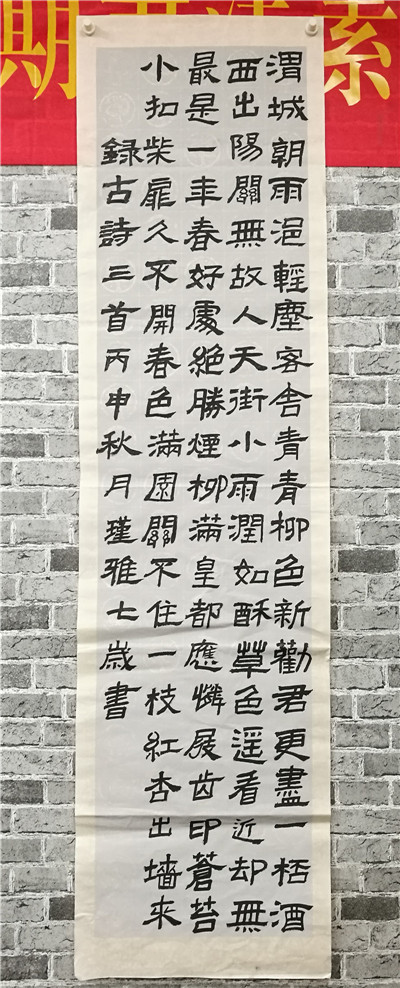 期 素
渭城朝雨浥輕塵客舍青青柳色新勸君更盡一桮酒
西出陽關無故人天街小雨潤如酥草色遥看近却無
最是一年春好處絶勝煙柳滿皇都應憐屐齒印蒼苔
小扣柴扉久不開春色滿園關不住一枝紅杏出墻來
録古詩三首丙申秋月瑾雅七歲書